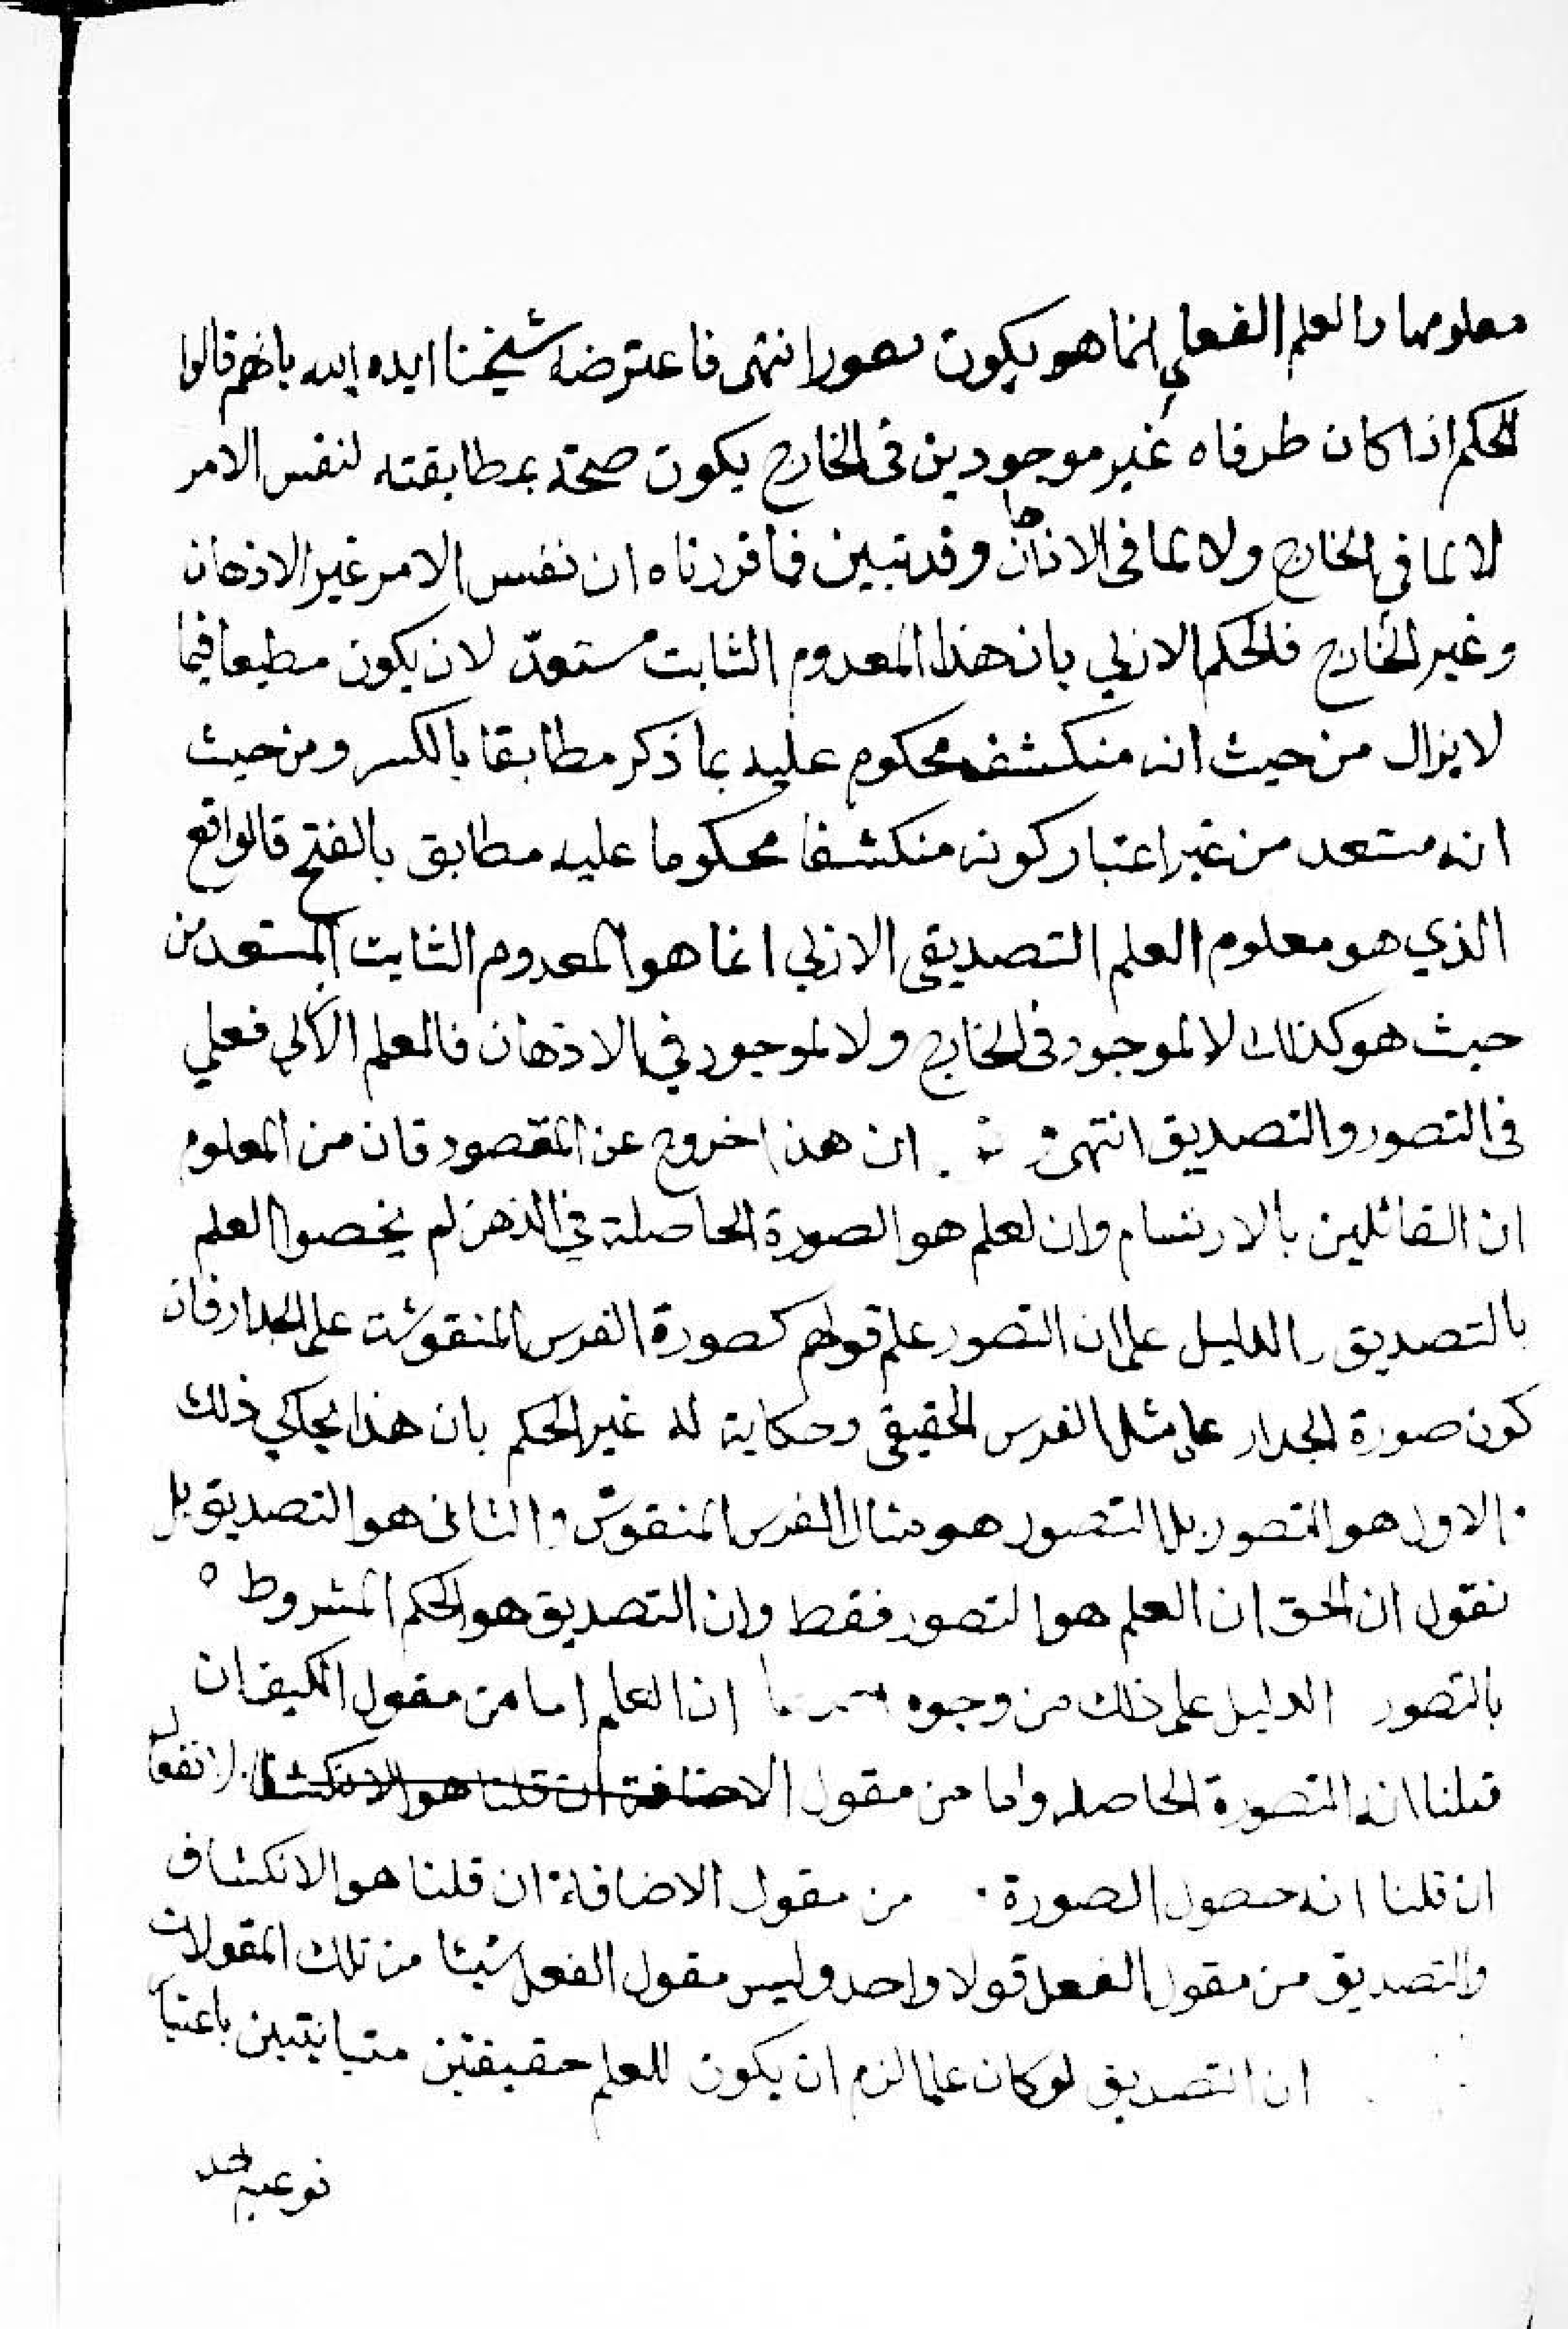 معلومها والعلم الفعلي انما هو يكون تصورا انتهى فاعترضه شيخنا ايده الله بانهم قالوا
الحكم اذا كان طرفاه غير موجودين في الخارج يكون صحته بمطابقته لنفس الامر
لا بما في الخارج ولا بما في الاذهان وقد تبين فيما قررناه ان نفس الامر غير الاذهان
وغير الخارج فالحكم الازلي بان هذا المعدوم الثابت مستعد لان يكون مطيعا فيما
لا يزال من حيث انه منكشف محكوم عليه بما ذكر مطابقا بالكسر ومن حيث
انه مستعد من غير اعتبار كونه منكشفا محكوما عليه مطابق بالفتح فالواقع
الذي هو معلوم العلم التصديقي الازلي انما هو المعدوم الثابت المستعد من
حيث هو كذلك لا الموجود في الخارج ولا الموجود في الاذهان فالعلم الازلي فعلي
في التصور والتصديق انتهى ان هذا خروج عن المقصود فان من المعلوم
ان القائلين بالارتسام وان لعلم هو الصورة الحاصلة في الذهن لم يخصوا العلم
بالتصديق والدليل على ان التصور علم قولهم كصورة الفرس المنقوشة على الجدار فان
كون صورة الجدار على مثل الفرس الحقيقي وحكاية له غير الحكم بان هذا يحاكي ذلك
الاول هو التصور بل التصور هو مثال الفرس المنقوش والثاني هو التصديق بل
نقول ان الحق ان العلم هو التصور فقط وان التصديق هو الحكم المشروط ه
بالتصور الدليل على ذلك من وجوه ان العلم اما من مقول الكيف ان
قلنا انه الصورة الحاصله واما من مقول الاضافة ان قلنا هو الانكشاف الانفعال
ان قلنا انه حصول الصورة من مقول الاضافة ان قلنا هو الانكشاف
والتصديق من مقول الفعل قولا واحد وليس مقول الفعل شيئا من تلك المقولات
ان التصديق لو كان علما لزم ان يكون للعلم حقيقتين متباينتين باعتبار